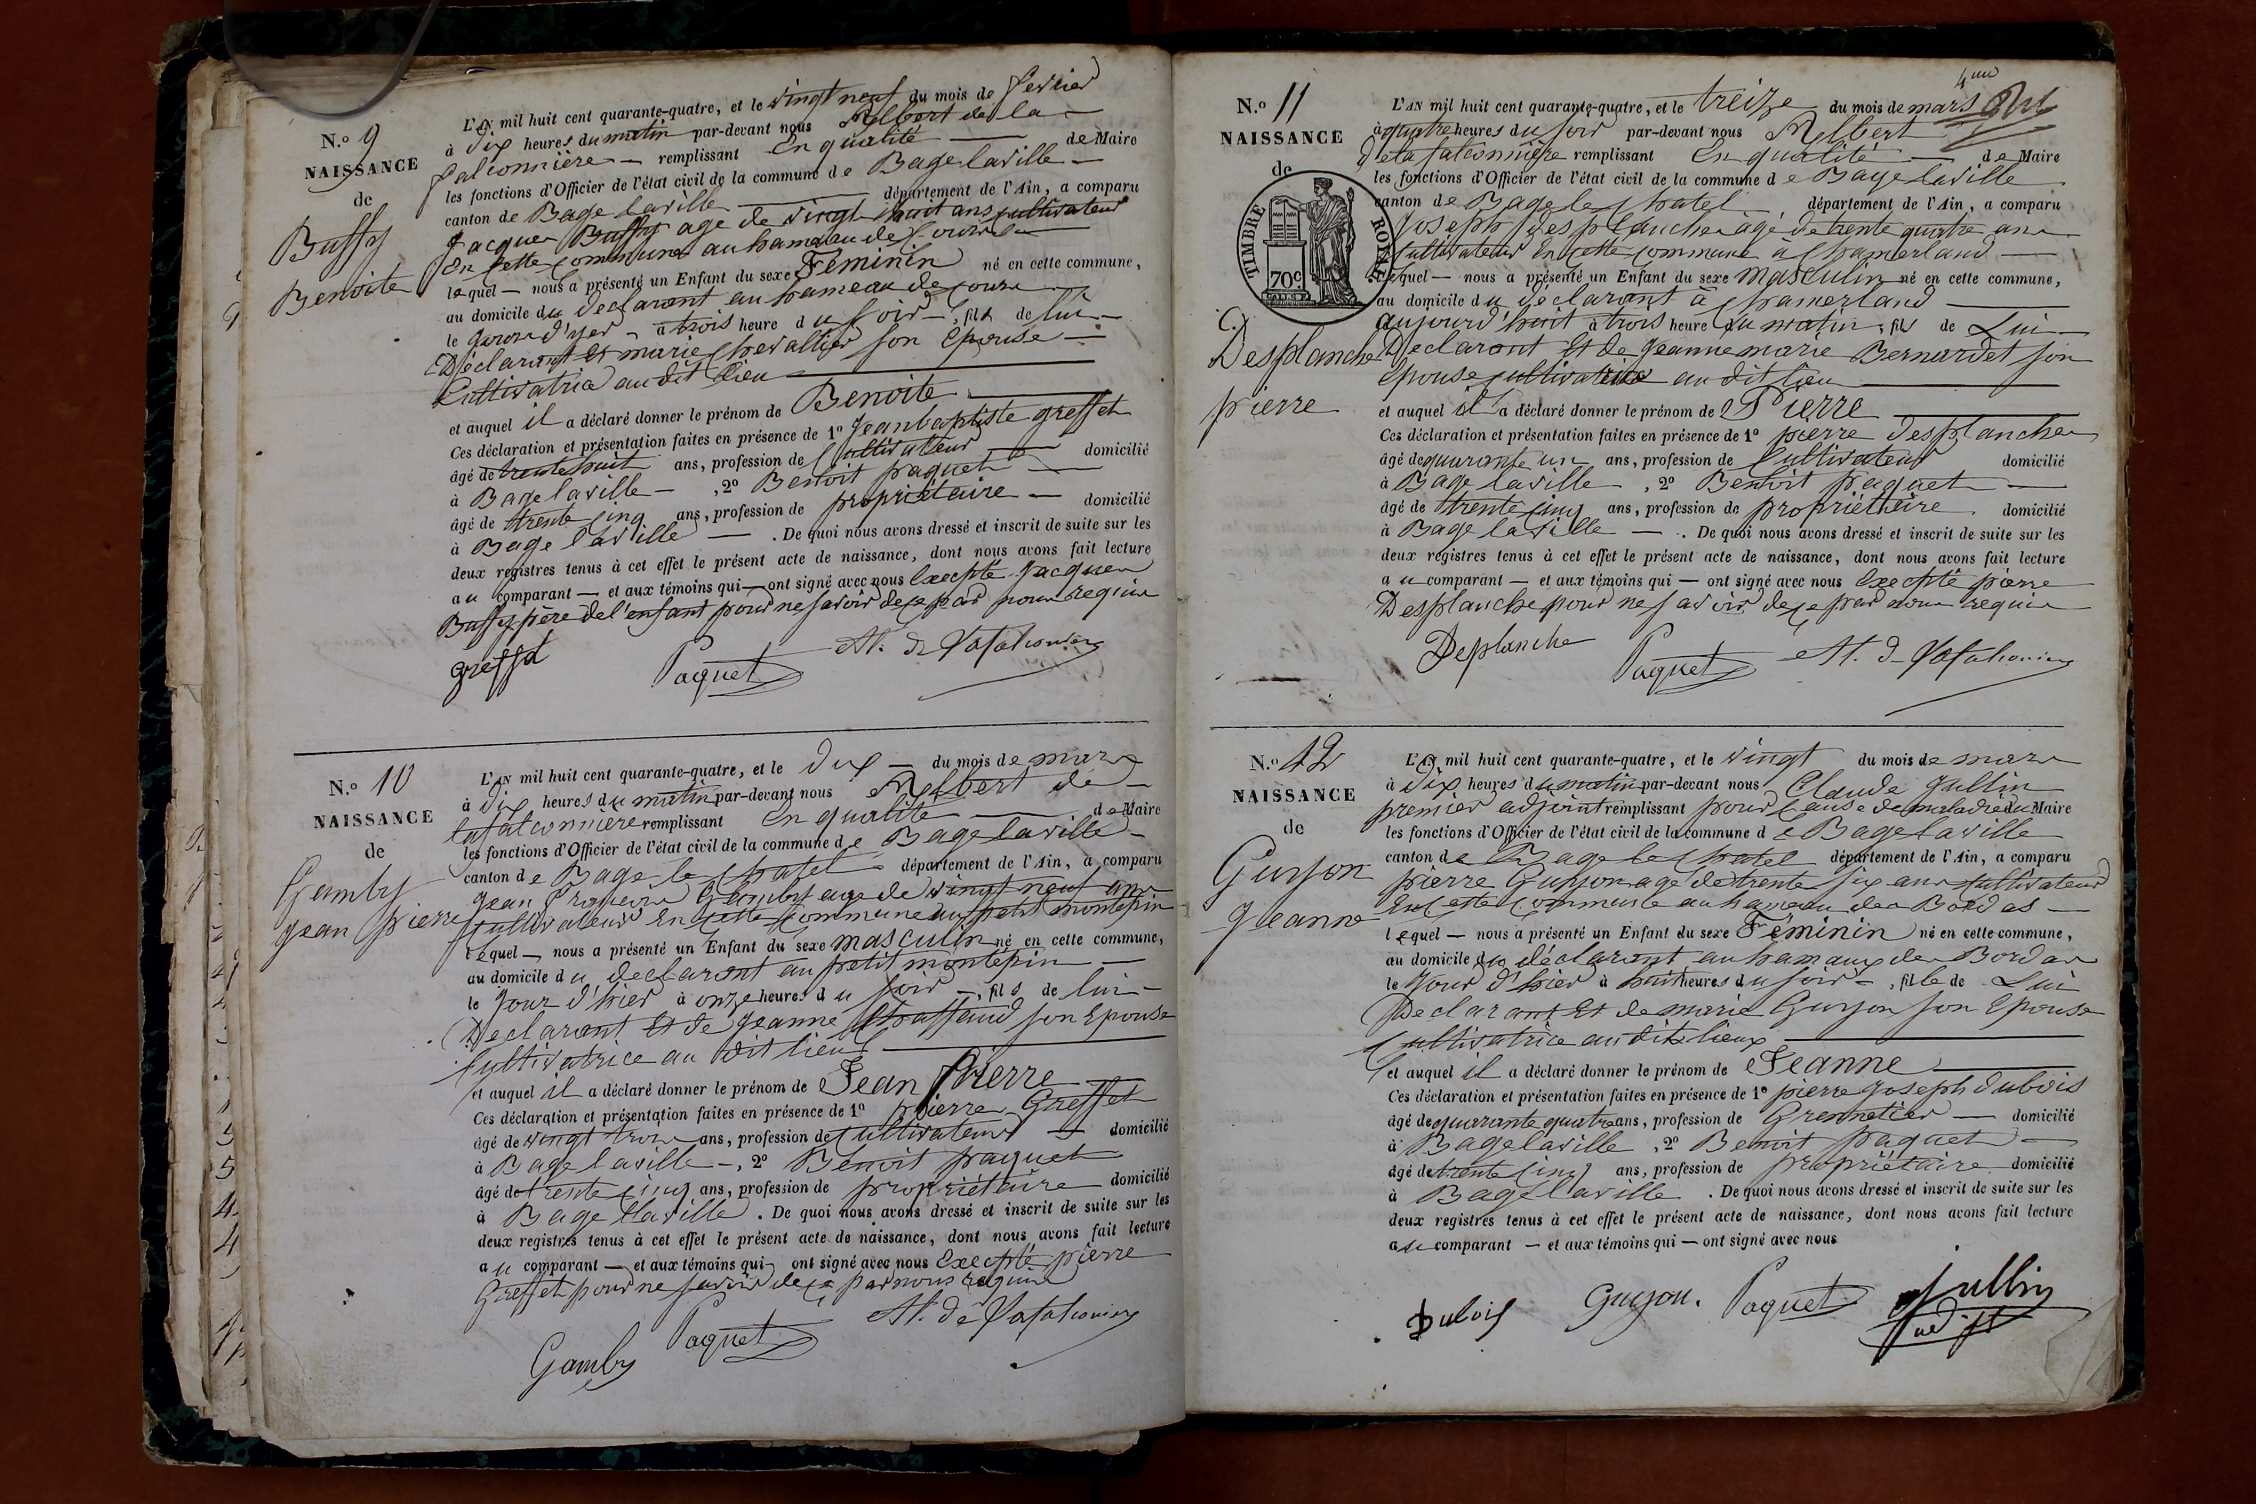 N.º 9
NAISSANCE
de
Buffy
Benoite
L'AN mil huit cent quarante-quatre, et le vingt neuf du mois de fevrier
à dix heures du matin par-devant nous Albert de la
falconnière — remplissant en qualité — de Maire
les fonctions d'Officier de l'état civil de la commune de Bagé laville —
canton de Bagé laville — département de l'Ain, a comparu
Jacques Buffy age de vingt huit ans cultivateur
en cette commune au hameau de
lequel — nous a présenté un Enfant du sexe Féminin né en cette commune,
au domicile du déclarant au hameau de
le jour d'yer — à trois heure du soir —, fils de lui —
Déclarant et marie Chevallier son épouse —
Cultivatrice au dit lieu —
et auquel il a déclaré donner le prénom de Benoite —
Ces déclaration et présentation faites en présence de 1º Jean baptiste greffet
âgé de trente huit ans, profession de Cultivateur domicilié
à Bagé laville —, 2º Benoit paquet —
âgé de trente cinq ans, profession de propriétaire — domicilié
à Bagé laville — . De quoi nous avons dressé et inscrit de suite sur les
deux registres tenus à cet effet le présent acte de naissance, dont nous avons fait lecture
au comparant — et aux témoins qui — ont signé avec nous Excepté Jacques
Buffy père de l'enfant pour ne savoir de ce par nous requis
greffet Paquet At. de Lafalconnière
N.º 10
NAISSANCE
de
Gamby
jean pierre
L'AN mil huit cent quarante-quatre, et le dix — du mois de mars
à dix heures du matin par-devant nous Albert de
lafalconnière remplissant en qualité — de Maire
les fonctions d'Officier de l'état civil de la commune de Bagé laville —
canton de Bagé le Chatel — département de l'Ain, a comparu
Jean François Gamby age de vingt neuf ans
cultivateur en cette commune au petit montepin
lequel — nous a présenté un Enfant du sexe masculin né en cette commune,
au domicile du déclarant au petit montepin —
le jour d'hier à onze heures du soir —, fils de lui —
Déclarant et de Jeanne son Epouse
Cultivatrice au dit lieu —
et auquel il a déclaré donner le prénom de Jean Pierre —
Ces déclaration et présentation faites en présence de 1º pierre Greffet
âgé de vingt trois ans, profession de cultivateur — domicilié
à Bagé laville —, 2º Benoit paquet
âgé de trente cinq ans, profession de propriétaire domicilié
à Bagé laville . De quoi nous avons dressé et inscrit de suite sur les
deux registres tenus à cet effet le présent acte de naissance, dont nous avons fait lecture
au comparant — et aux témoins qui ont signé avec nous Excepté pierre
Greffet pour ne savoir de ce par nous requis
Gamby Paquet At. de Lafalconnière
N.º 11
NAISSANCE
de
TIMBRE ROYAL
70 c
Desplanche
pierre
4me
L'AN mil huit cent quarante-quatre, et le treize du mois de mars
à quatre heures du soir par-devant nous Albert
de la falconnière remplissant En qualité — de Maire
les fonctions d'Officier de l'état civil de la commune de Bagé laville
canton de Bagé le Chatel département de l'Ain, a comparu
Joseph Desplanche âgé de trente quatre ans
Cultivateur en cette commune à Chamerland —
lequel — nous a présenté un Enfant du sexe masculin né en cette commune,
au domicile du déclarant à Chamerland —
aujourd'huit à trois heure du matin, fils de Lui —
Déclarant et de jeanne marie Bernardet son
épouse cultivatrice au dit lieu —
et auquel il a déclaré donner le prénom de Pierre —
Ces déclaration et présentation faites en présence de 1º pierre desplanche
âgé de quarante un ans, profession de Cultivateur domicilié
à Bagé laville, 2º Benoit paquet —
âgé de trente cinq ans, profession de propriétaire domicilié
à Bagé laville — . De quoi nous avons dressé et inscrit de suite sur les
deux registres tenus à cet effet le présent acte de naissance, dont nous avons fait lecture
au comparant — et aux témoins qui — ont signé avec nous Excepté pierre
Desplanche pour ne savoir de ce par nous requis
Deplanche Paquet At. de Lafalconnière
N.º 12
NAISSANCE
de
Guyon
Jeanne
L'AN mil huit cent quarante-quatre, et le vingt du mois de mars
à dix heures du matin par-devant nous Claude Jullin
premier adjoint remplissant pour cause de maladie du Maire
les fonctions d'Officier de l'état civil de la commune de Bagé laville
canton de Bagé le Chatel département de l'Ain, a comparu
pierre Guyon age de trente six ans cultivateur
en cette commune au hameau des Bordes —
lequel — nous a présenté un Enfant du sexe Féminin né en cette commune,
au domicile du déclarant au hamaux des Bordes
le jour d'hier à huit heures du soir —, fille de Lui
Déclarant et de marie Guyon son Epouse
Cultivatrice au dit lieux —
et auquel il a déclaré donner le prénom de Jeanne —
Ces déclaration et présentation faites en présence de 1º pierre joseph dubois
âgé de quarante quatre ans, profession de Grennetier — domicilié
à Bagé laville, 2º Benoit paquet —
âgé de trente cinq ans, profession de propriétaire domicilié
à Bagé laville . De quoi nous avons dressé et inscrit de suite sur les
deux registres tenus à cet effet le présent acte de naissance, dont nous avons fait lecture
au comparant — et aux témoins qui — ont signé avec nous
Dubois Guyon. Paquet Jullin